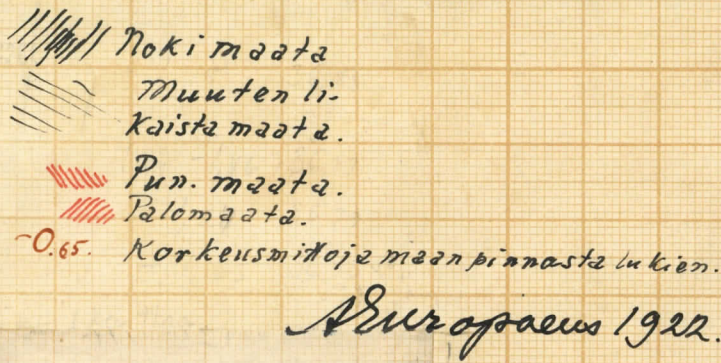 Nokimaata
Muuten li-
kaista maata.
Pun. maata.
Palomaata.
-0.65. Korkeusmittoja maanpinnasta lukien.
AEuropaeus 1922.